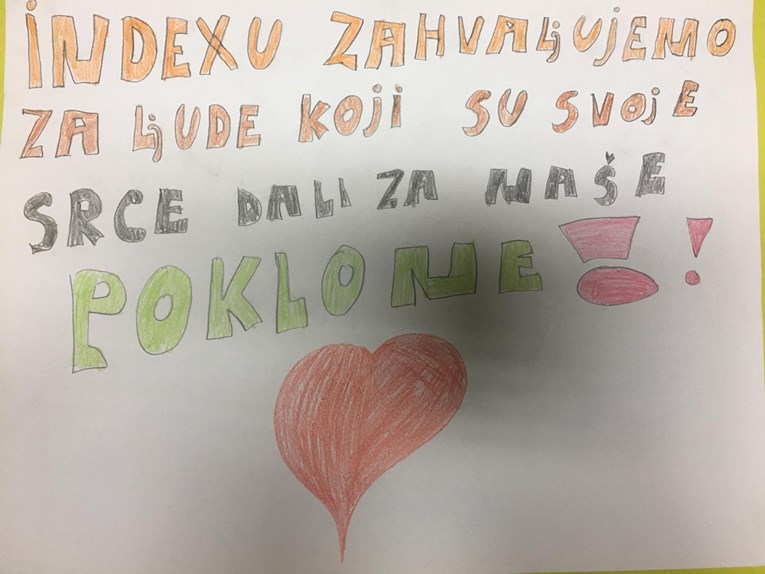 INDEXU ZAHVALjUJEMO
ZA LjUDE KOJI SU SVOJE
SRCE DALI ZA NAŠE
POKLONE!!